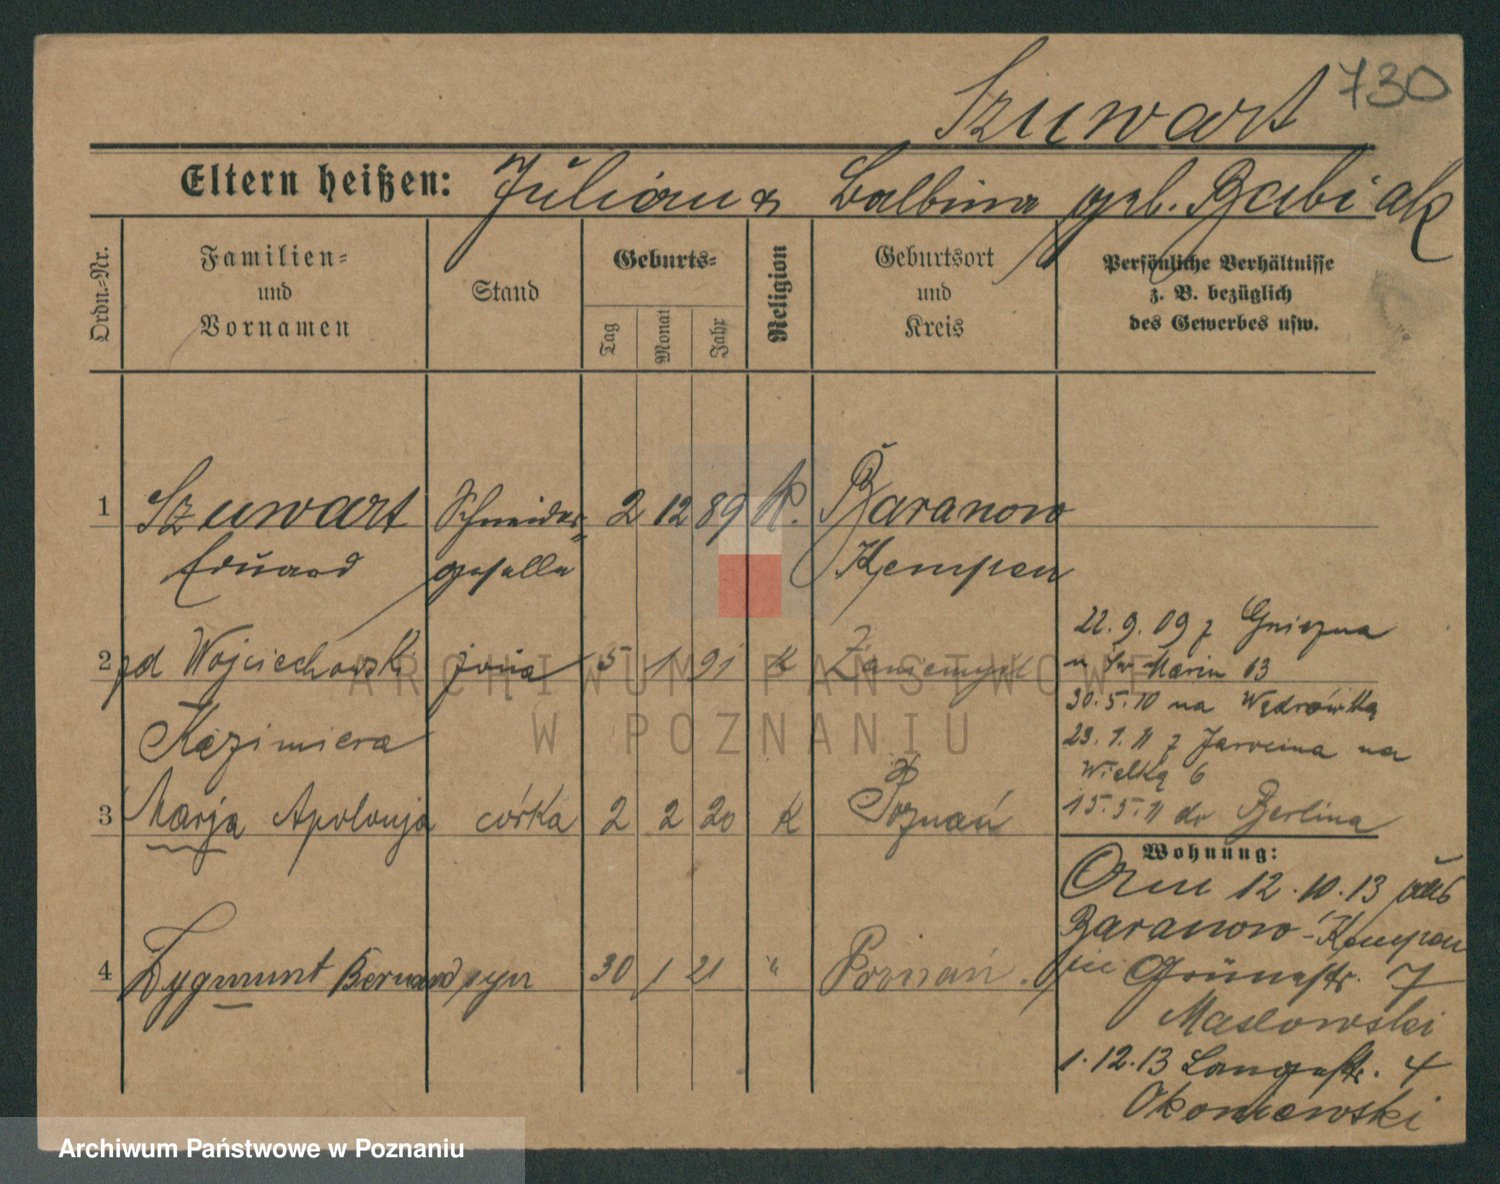 730
Szuwart
Eltern heißen: Julian & Balbina geb. Babiak
Ordn.-Nr.
Familien-
und
Vornamen
Stand
Geburts-
Tag
Monat
Jahr
Religion
Geburtsort
und
Kreis
Persönliche Verhältnisse
z. B. bezüglich
des Gewerbes usw.
1 Szuwart Schneider- 2 12 89 K. Baranow
Eduard geselle Kempen
2 zd Wojciechowski żona 5 1 91 K Zaniemyśl
Kazimiera
3 Marja Apolonja córka 2 2 20 K Poznań
4 Zygmunt Bernard syn 30 1 21 " Poznań
22.9.09 z Gniezna
Św Marcin 63
30.5.10 na Wędrówkę
23.1.11 z Jarocina na
Wielką 6
15.5.11 do Berlina
Wohnung:
12.10.13 aus
Baranow-Kempen
Grünestr. 7
Masłowski
1.12.13 Langestr. 4
Okoniewski
ARCHIWUM PAŃSTWOWE
W POZNANIU
Archiwum Państwowe w Poznaniu